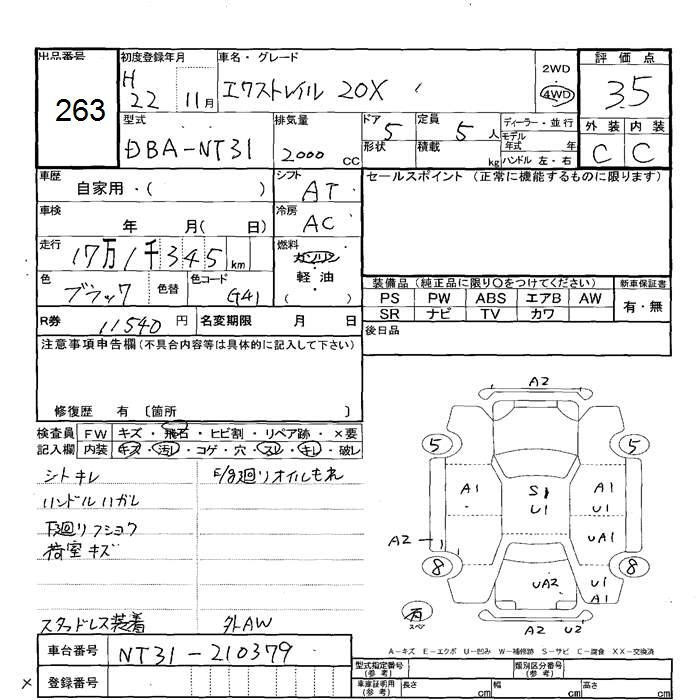 出品番号 初度登録年月 車名・グレード 2WD 評価点
263 H 22 11月 エクストレイル 20X 4WD 3.5
型式 排気量 ドア 定員 ディーラー・並行 外装 内装
DBA-NT31 2000 cc 5 5 人 モデル年式 年 C C
形状 積載 kg ハンドル 左・右
車歴 シフト セールスポイント (正常に機能するものに限ります)
自家用・( ) AT
車検 冷房
年 月( 日) AC
走行 燃料
17万1千345 km ガソリン
軽油
( )
色 色替 色コード 装備品(純正品に限り○をつけてください) 新車保証書
ブラック G41 PS PW ABS エアB AW 有・無
R券 11540 円 名変期限 月 日 SR ナビ TV カワ
注意事項申告欄(不具合内容等は具体的に記入して下さい) 後日品
修復歴 有 〔箇所 〕
検査員 FW キズ・飛石・ヒビ割・リペア跡・×要
記入欄 内装 キズ・汚レ・コゲ・穴・スレ・キレ・破レ
シトキレ E/g廻りオイルもれ
ハンドルハガレ
下廻りフショク
荷室キズ
スタッドレス装着 外AW
A2
5 5
A1 S1 A1
U1 U1
A2 UA1
8 8
UA2 U1
A1
A2 U2
A-キズ E-エクボ U-凹み W-補修跡 S-サビ C-腐食 XX-交換済
車台番号 NT31-210379
× 登録番号
型式指定番号(参考) 類別区分番号(参考)
車庫証明用(参考) 長さ cm 幅 cm 高さ cm